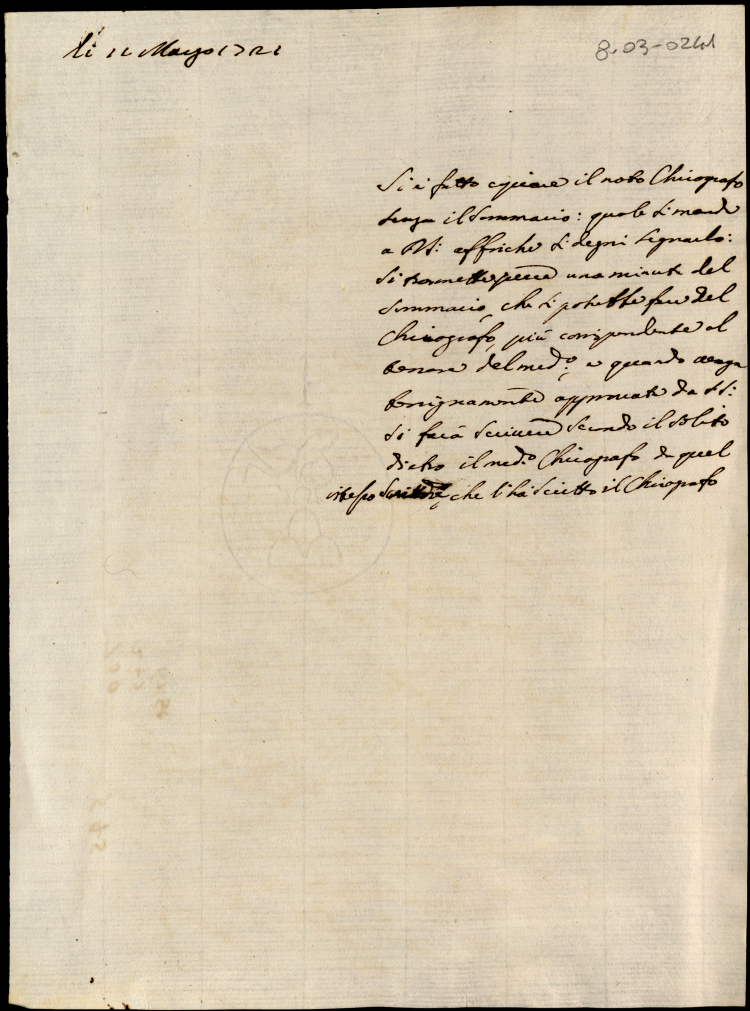 li 11 Marzo 1721
8.03-0241
Si è fatto copiare il noto Chirografo
senza il Sommario: quale si manda
a affinche si degni segnarlo:
Si trasmette una minuta del
Sommario, che si potrebbe fare del
Chirografo, più corrispondente al
tenore del med.o: e quando venga
benignamente approvata da
si farà scrivere secondo il solito
dietro il med.o Chirografo da quel
istesso che l'hà scritto il Chirografo